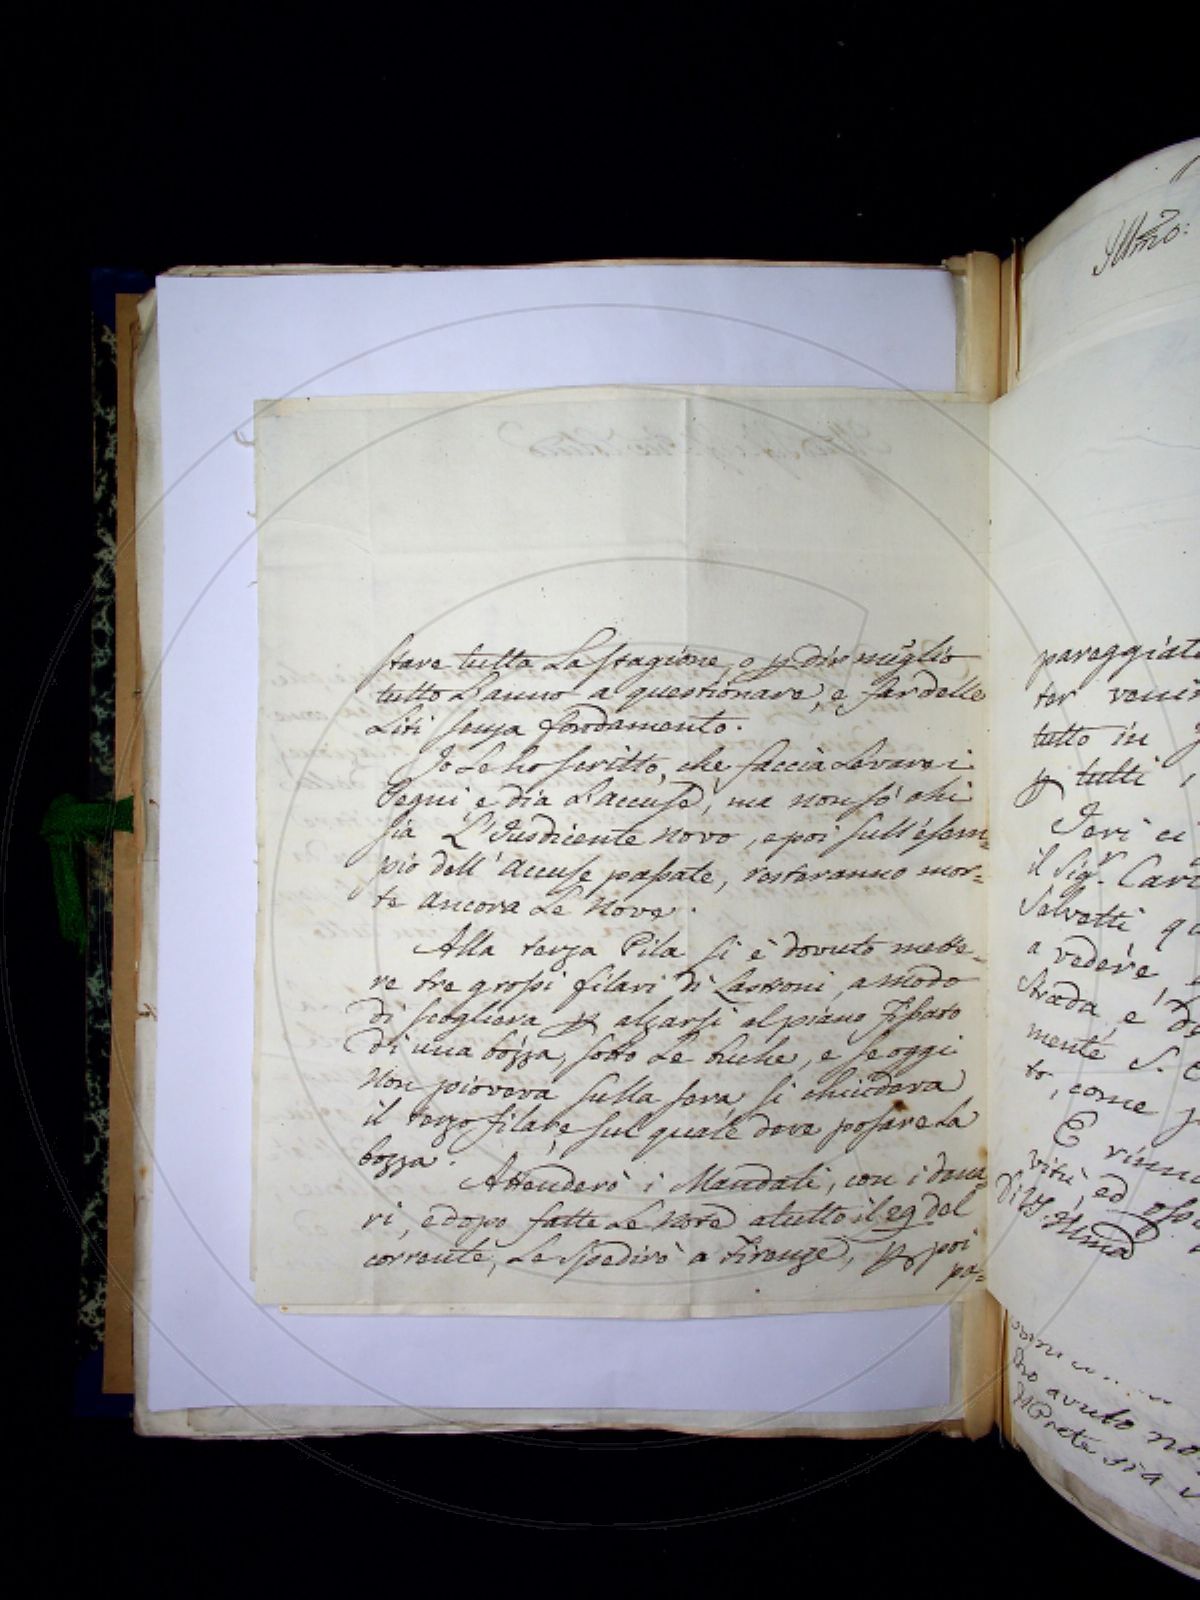 stare tutta La stagione, o p dir meglio
tutto L'anno a questionare, e far delle
Liti senza fondamento.
Io Le ho scritto, che faccia Levare i
Pegni e dia L'accuse, ma non sò chi
sia L'Iusdicente novo, e poi sull'esem=
pio dell'accuse passate, resteranno mor=
te ancora Le Nove.
Alla terza Pila si è dovuto mette=
re tre grossi filari di Lastroni, a modo
di scogliera p alzarsi al piano fissato
di una bozza, sotto Le buche, e se oggi
non pioveva sulla sera, si chiudeva
il terzo filare sul quale deve posare La
bozza.
Attenderò i Mandati, con i dana=
ri, e dopo fatte Le Note a tutto il 29 del
corrente, Le spedirò a Firenze, p poi
pa=
Illmo:
pareggiat
ter veni
tutto in
p tutti
Ieri ci
il Sigr. Car
Salvetti qu
a vedere,
strada, e de
mente S.
to, come
E rinno
vitù, ed oss
Di VS. Illma
avuto no
Prete sia